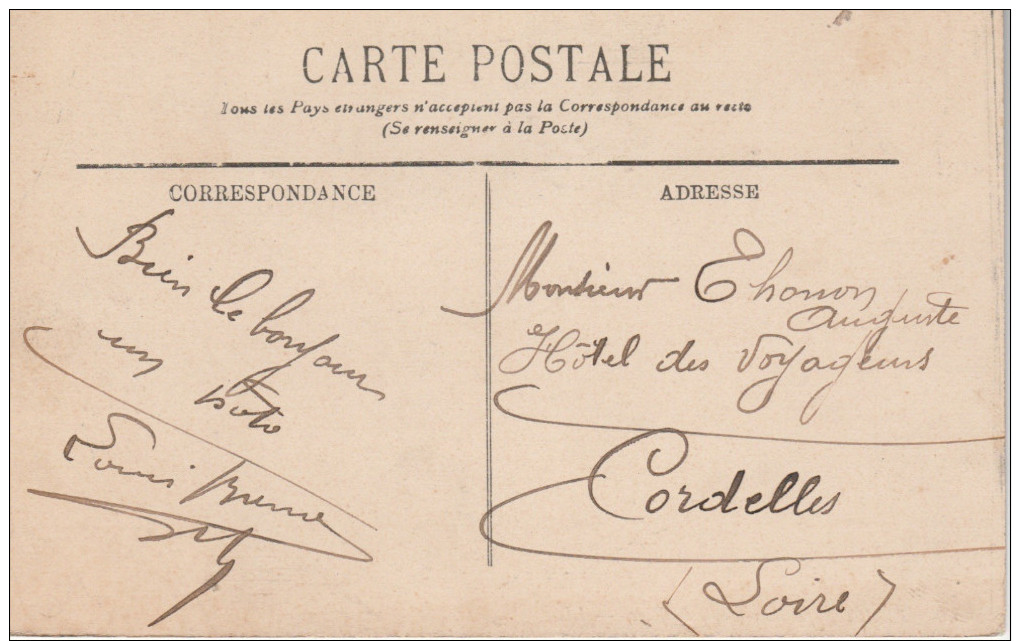 CARTE POSTALE
Tous les Pays etrangers n'acceptent pas la Correspondance au recto
(Se renseigner à la Poste)
CORRESPONDANCE
Bien le bonjour
un poto
Louis
ADRESSE
Monsieur Thonon
Auguste
Hôtel des Voyageurs
Cordelles
(Loire)